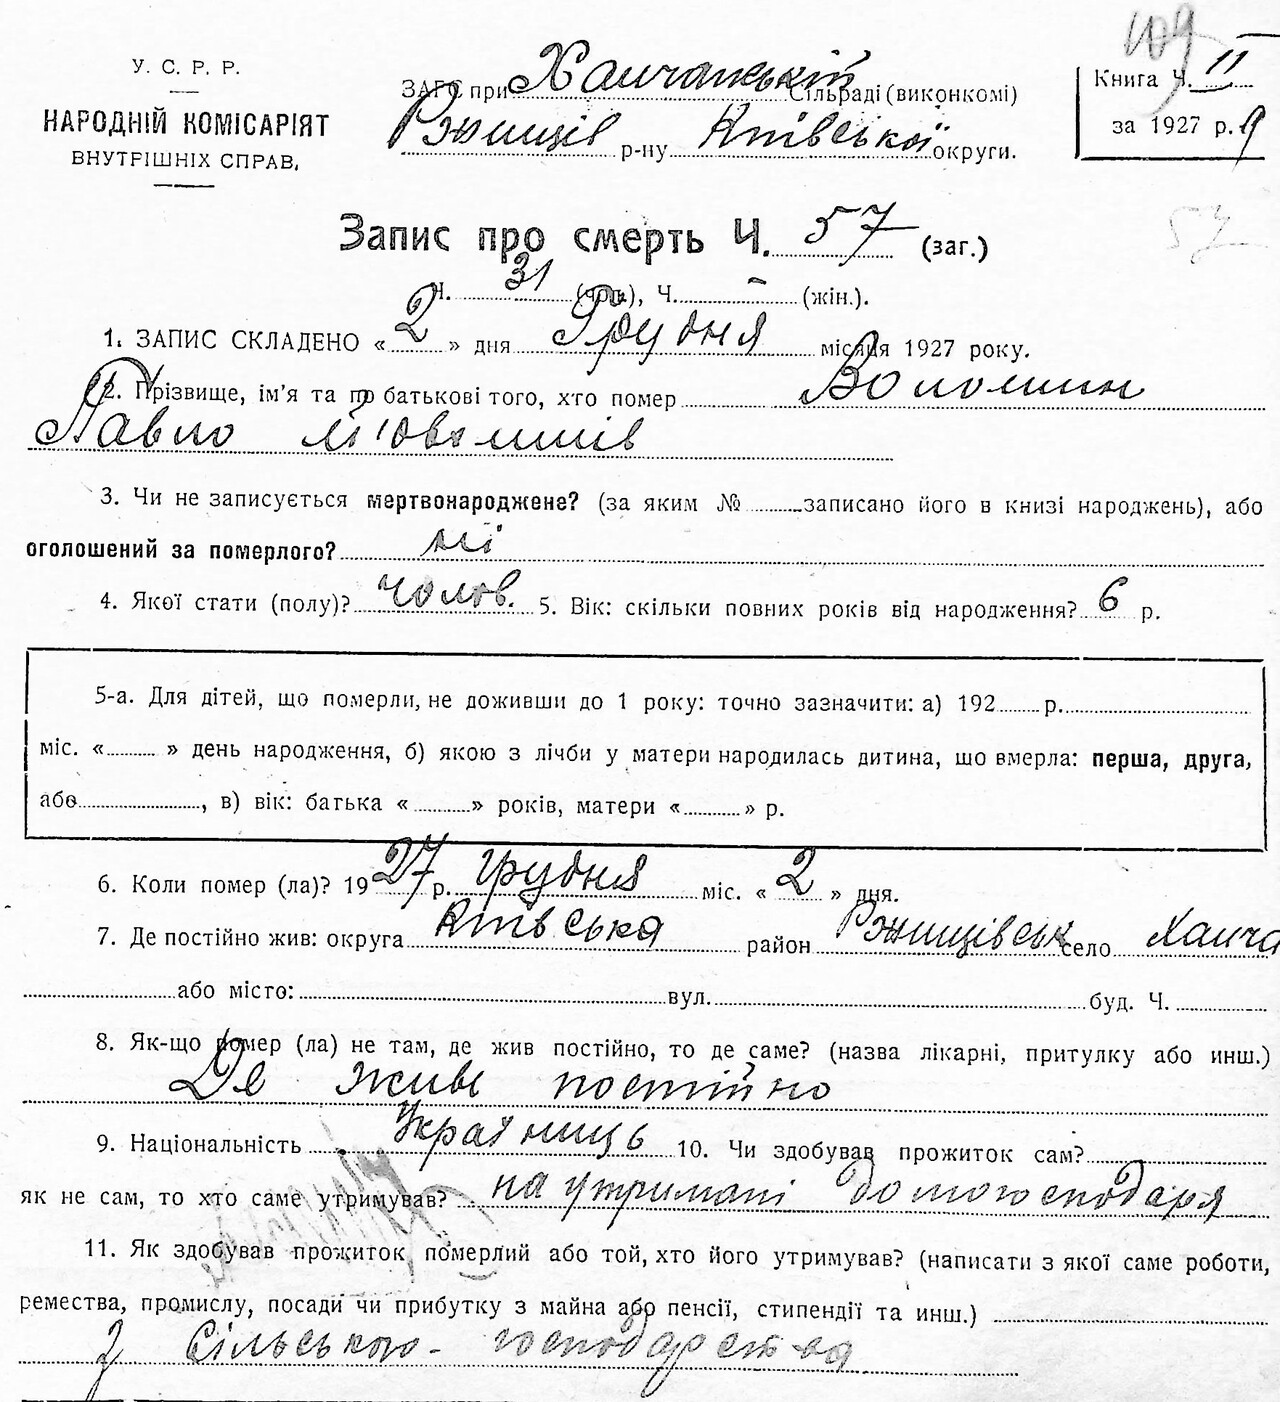 109
У. С. Р. Р.
НАРОДНІЙ КОМІСАРІЯТ
ВНУТРІШНІХ СПРАВ.
ЗАГС при Ханчанській Сільраді (виконкомі)
Ржищів р-ну Київської округи.
Книга Ч. II
за 1927 р.
Запис про смерть Ч. 57 (заг.)
57
Ч. 31 (чол.), Ч. - (жін.).
1. ЗАПИС СКЛАДЕНО « 2 » дня Грудня місяця 1927 року.
2. Прізвище, ім'я та по батькові того, хто помер Воломин
Павло
3. Чи не записується мертвонароджене? (за яким № записано його в книзі народжень), або
оголошений за померлого? ні
4. Якої стати (полу)? чолов. 5. Вік: скільки повних років від народження? 6 р.
5-а. Для дітей, що померли, не доживши до 1 року: точно зазначити: а) 192 р.
міс. « » день народження, б) якою з лічби у матери народилась дитина, що вмерла: перша, друга,
або , в) вік: батька « » років, матери « » р.
6. Коли помер (ла)? 1927 р. грудня міс. « 2 » дня.
7. Де постійно жив: округа Київська район Ржищівськ село Ханча
або місто: вул. буд. Ч.
8. Як-що помер (ла) не там, де жив постійно, то де саме? (назва лікарні, притулку або инш.)
Де живе постійно
9. Національність Українець 10. Чи здобував прожиток сам?
як не сам, то хто саме утримував? на утримані домогосподаря
11. Як здобував прожиток померлий або той, хто його утримував? (написати з якої саме роботи,
ремества, промислу, посади чи прибутку з майна або пенсії, стипендії та инш.)
З сільського-господарства